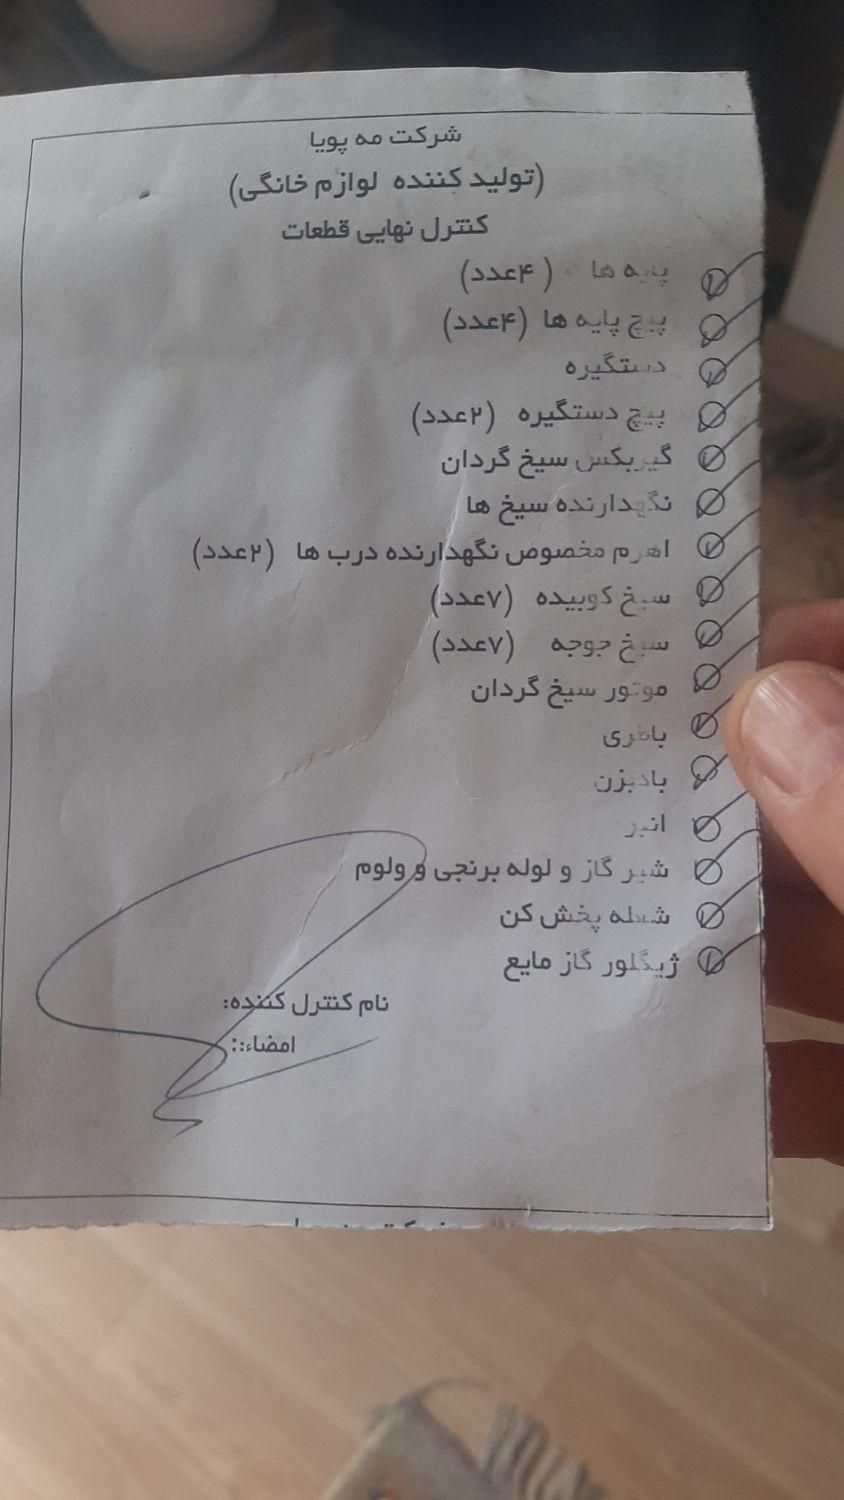 شرکت مه پویا
(تولید کننده لوازم خانگی)
کنترل نهایی قطعات
پایه ها (۴عدد)
پیچ پایه ها (۴عدد)
دستگیره
پیچ دستگیره (۲عدد)
گیربکس سیخ گردان
نگهدارنده سیخ ها
اهرم مخصوص نگهدارنده درب ها (۲عدد)
سیخ کوبیده (۷عدد)
سیخ جوجه (۷عدد)
موتور سیخ گردان
باطری
بادبزن
انبر
شیر گاز و لوله برنجی و ولوم
شعله پخش کن
ژیگلور گاز مایع
نام کنترل کننده:
امضاء::